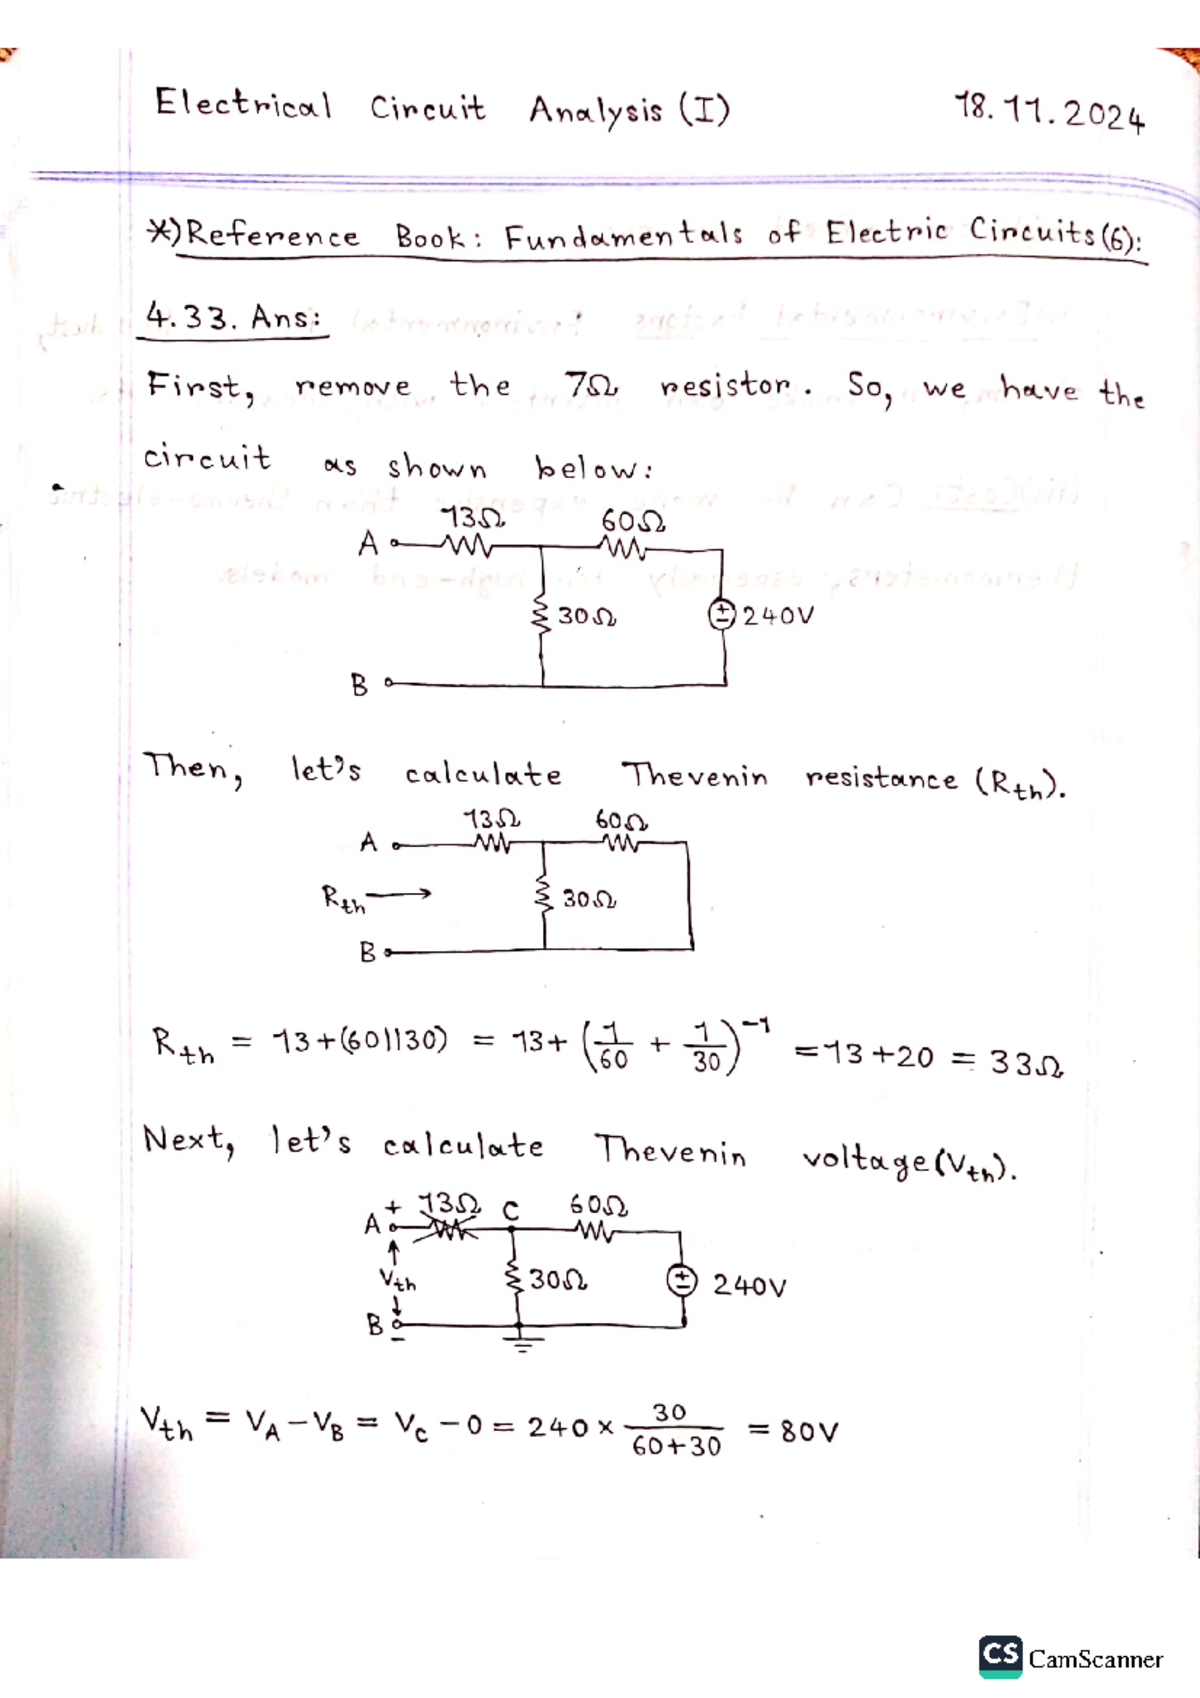 Electrical Circuit Analysis (I) 18.11.2024
*) Reference Book: Fundamentals of Electric Circuits (6):
4.33. Ans:
First, remove the 7Ω resistor. So, we have the
circuit as shown below:
13Ω 60Ω
A
30Ω 240V
B
Then, let's calculate Thevenin resistance (Rth).
13Ω 60Ω
A
Rth → 30Ω
B
Rth = 13+(60||30) = 13+ (1/60 + 1/30)^-1 = 13+20 = 33Ω
Next, let's calculate Thevenin voltage (Vth).
+ 13Ω C 60Ω
A
Vth 30Ω 240V
B
-
Vth = VA - VB = Vc - 0 = 240 × 30/(60+30) = 80V
CS CamScanner